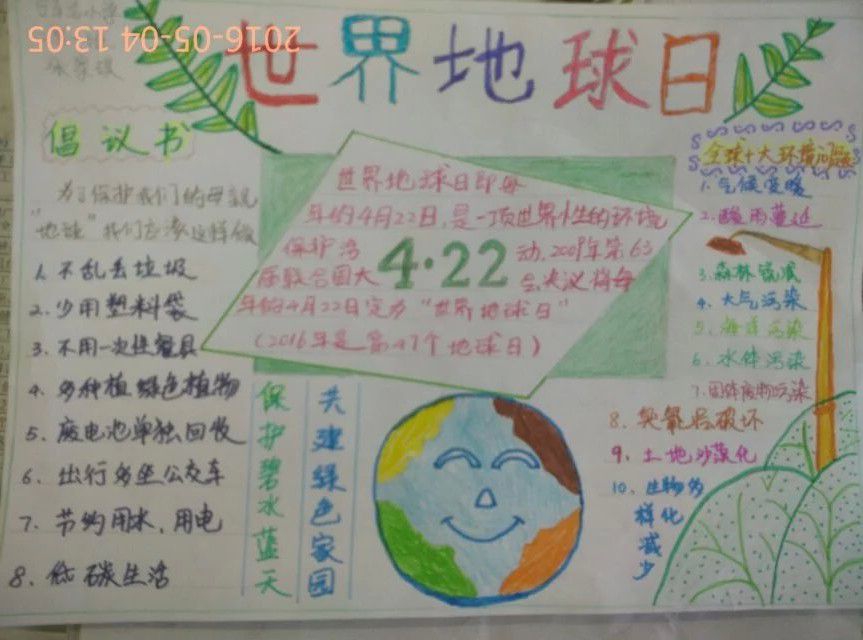 2016-05-04 13:05
世界地球日
倡议书
为了保护我们的母亲
"地球"我们应该这样做
1. 不乱丢垃圾
2. 少用塑料袋
3. 不用一次性餐具
4. 多种植绿色植物
5. 废电池单独回收
6. 出行多坐公交车
7. 节约用水、用电
8. 低碳生活
世界地球日即每
年的4月22日,是一项世界性的环境
保护活 动,2009年第63
届联合国大 会决议将每
4·22
年的4月22日定为“世界地球日”
(2016年是第47个地球日)
保护碧水蓝天
共建绿色家园
全球十大环境问题
1. 气候变暖
2. 酸雨蔓延
3. 森林锐减
4. 大气污染
5. 海洋污染
6. 水体污染
7. 固体废物污染
8. 臭氧层破坏
9. 土地沙漠化
10. 生物多
样化
减
少